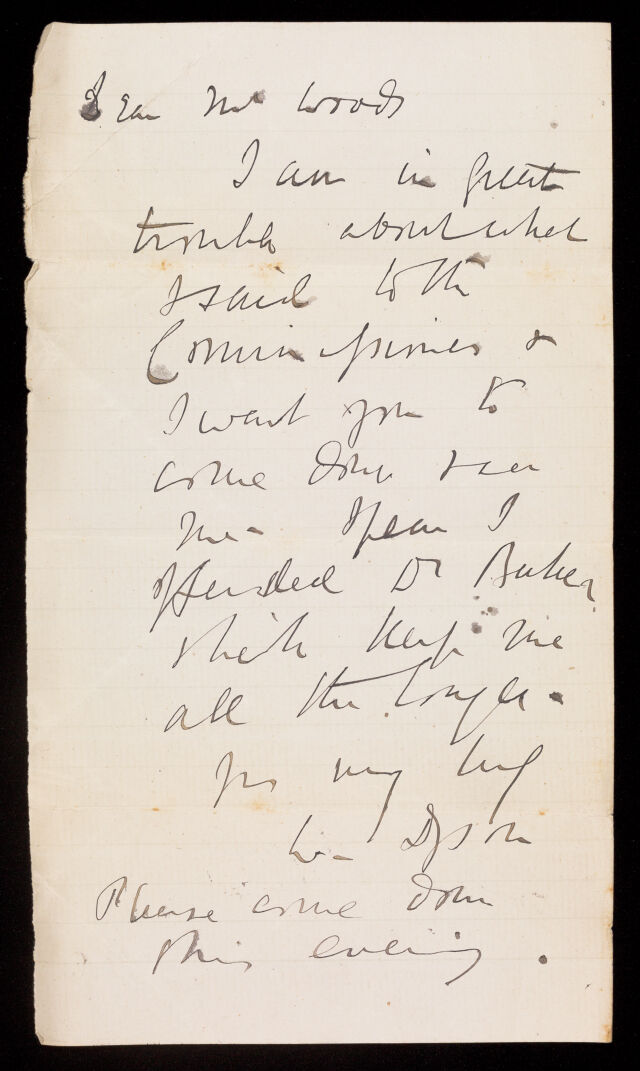 Dear Mr Woods
I am in great
trouble about what
I said to the
Commissioners &
I want you to
come down & see
me - I fear I
offended Dr Baker
& he'll keep me
all the longer.
yrs very truly
W- Dyson
Please come down
this evening.